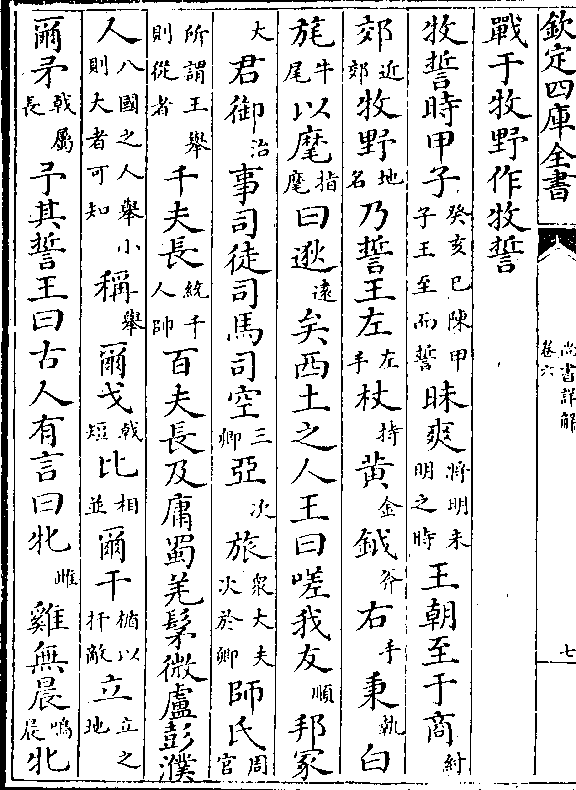 欽定四庫全書
尚書詳解
卷六
七
戰于牧野作牧誓
牧誓時甲子癸亥巳陳甲子王至而誓昧爽將明未明之時王朝至于商紂
郊近郊牧野地名乃誓王左左手杖持黄金鉞斧右手秉執白
旄牛尾以麾指麾曰逖遠矣西土之人王曰嗟我友順邦冢
大君御治事司徒司馬司空三卿亞次旅衆大夫次於卿師氏周官
所謂王舉則從者千夫長統千人帥百夫長及庸蜀羌髳微盧彭濮
人八國之人舉小則大者可知稱舉爾戈戟短比相並爾干楯以扞敵立立之地
爾矛戟屬長予其誓王曰古人有言曰牝雌雞無晨鳴晨牝